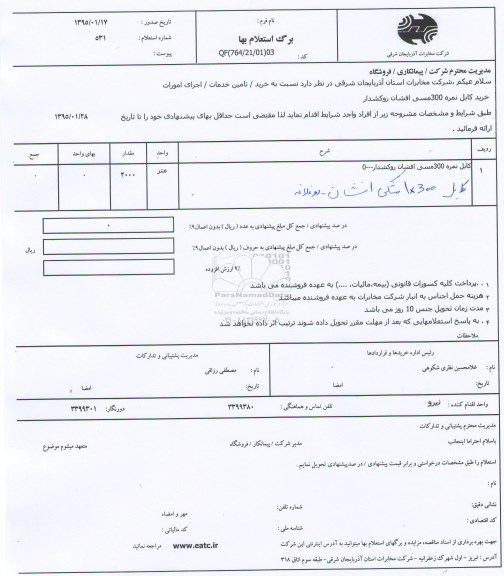 شرکت مخابرات آذربایجان شرقی
نام فرم :
برگ استعلام بها
کد : QF(764/21/01)03
تاریخ صدور : ۱۳۹۵/۰۱/۱۷
شماره استعلام : ۵۳۱
پیوست:
مدیریت محترم شرکت / پیمانکاری / فروشگاه
سلام علیکم ،شرکت مخابرات استان آذربایجان شرقی در نظر دارد نسبت به خرید / تامین خدمات / اجرای امورات
خرید کابل نمره 300مسی افشان روکشدار
طبق شرایط و مشخصات مشروحه زیر از افراد واجد شرایط اقدام نماید لذا مقتضی است حداقل بهای پیشنهادی خود را تا تاریخ ۱۳۹۵/۰۱/۲۸
ارائه فرمائید .
ردیف شرح واحد مقدار بهای واحد جمع
۱ کابل نمره 300مسی افشان روکشدار---0 متر ۲۰۰۰ ۰ ۰
کابل ۳۰۰×۱ مشکی افشان
در صد پیشنهادی / جمع کل مبلغ پیشنهادی به عدد ( ریال ) بدون اعمال۹% ۰
در صد پیشنهادی / جمع کل مبلغ پیشنهادی به حروف ( ریال ) بدون اعمال۹% ریال
۹% ارزش افزوده
ParsNamadData
۱ . .پرداخت کلیه کسورات قانونی (بیمه،مالیات، ....) به عهده فروشنده می باشد
۲ هزینه حمل اجناس به انبار شرکت مخابرات به عهده فروشنده میباشد
۳ مدت زمان تحویل جنس 10 روز می باشد
۴ . به پاسخ استعلامهایی که بعد از مهلت مقرر تحویل داده شوند ترتیب اثر داده نخواهد شد
ملاحظات
رئیس اداره خریدها و قراردادها
مدیریت پشتیبانی و تدارکات
نام : غلامحسین نظری شکوهی
نام : مصطفی رزاقی
تاریخ: امضا
تاریخ: امضا
واحد اقدام کننده : نیرو
تلفن تماس و هماهنگی : ۳۳۹۹۳۸۰
دورنگار: ۳۳۹۹۳۰۱
مدیریت محترم پشتیبانی و تدارکات
باسلام احتراما اینجانب مدیر شرکت / پیمانکار / فروشگاه متعهد میشوم موضوع
استعلام را طبق مشخصات درخواستی و برابر قیمت پیشنهادی / در صدپیشنهادی تحویل نمایم.
نام :
نشانی دقیق: شماره تلفن: مهر و امضاء
کد اقتصادی : شناسه ملی : کد مالیاتی :
جهت بهره برداری از اسناد مناقصه، مزایده و برگهای استعلام بها میتوانید به آدرس اینترنتی این شرکت www.eatc.ir مراجعه نمائید
آدرس : تبریز - اول شهرک زعفرانیه - شرکت مخابرات استان آذربایجان شرقی- طبقه سوم اتاق ۳۱۸